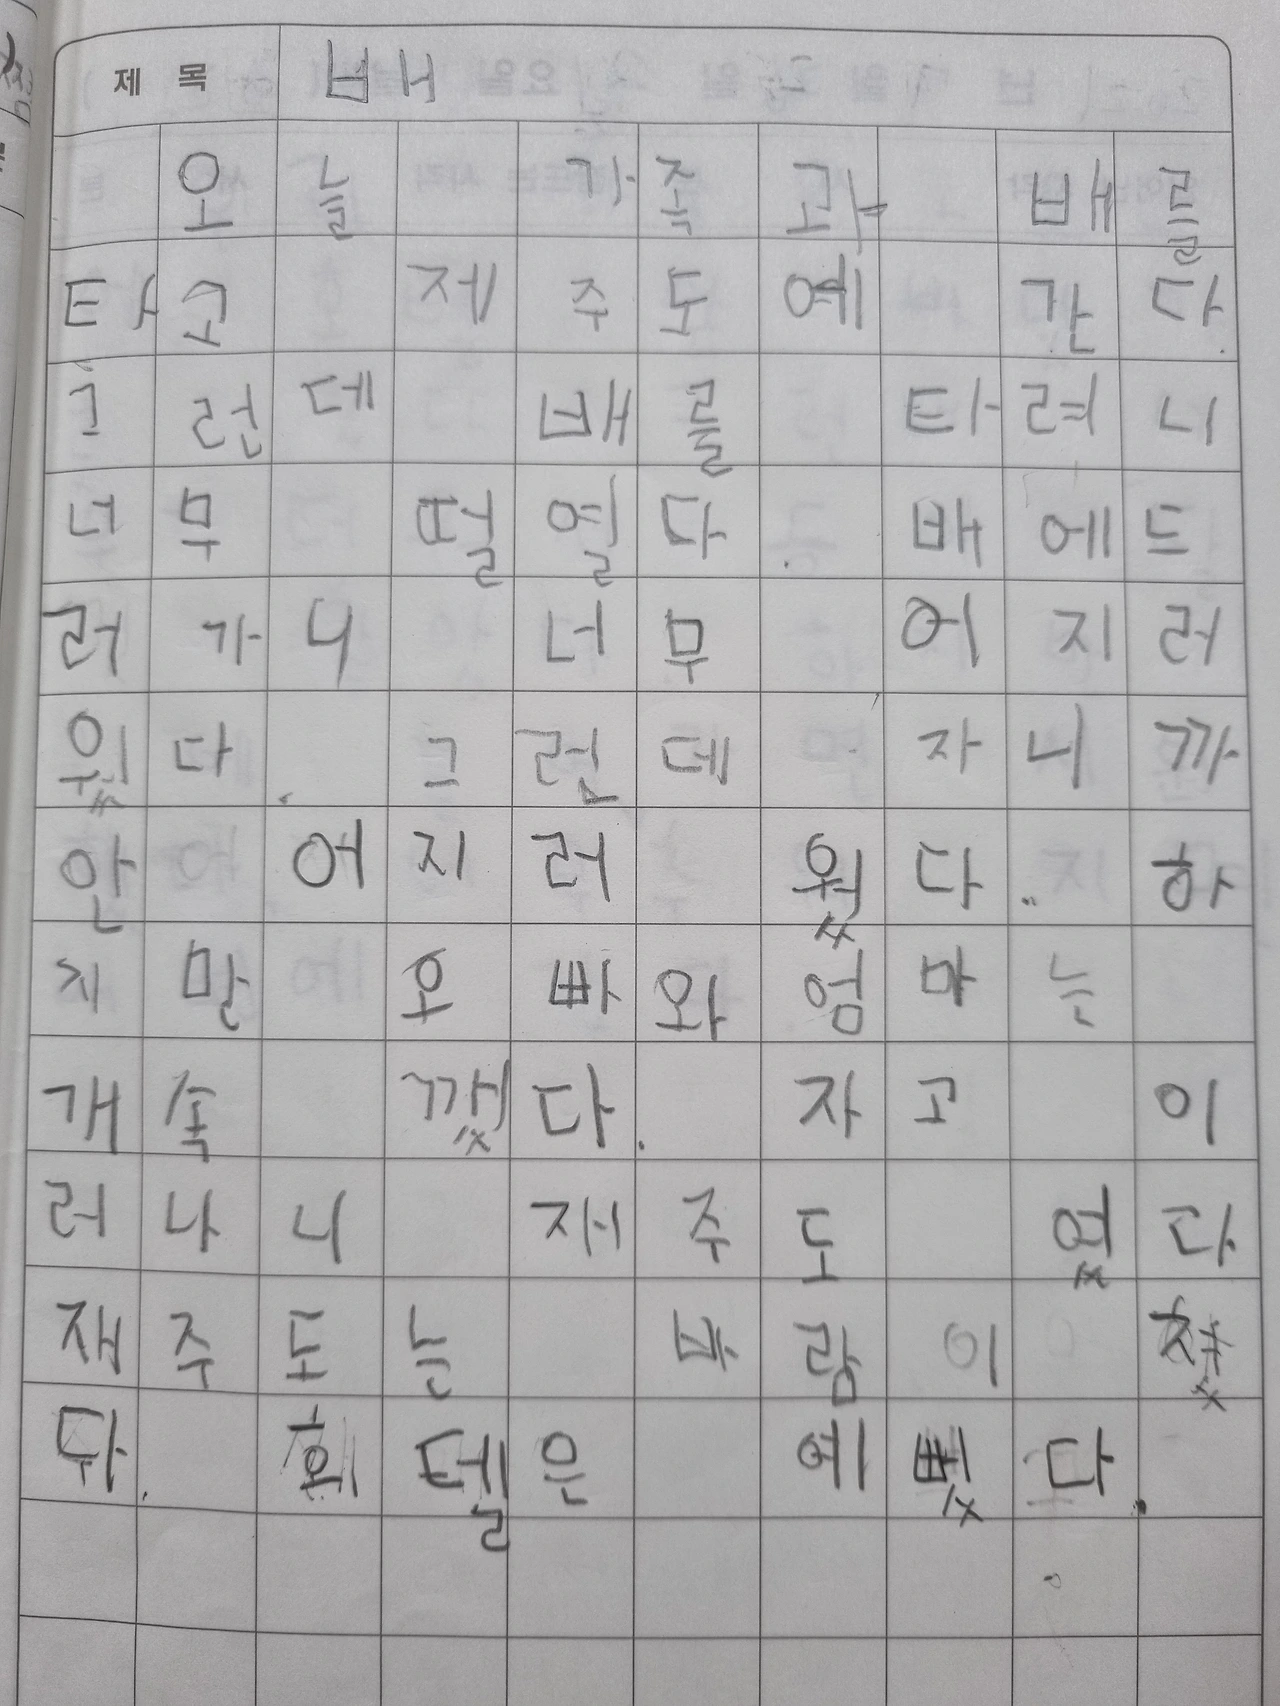 제 목 배
오늘 가족과 배를
타고 제주도에 간다.
그런데 배를 타려니
너무 떨열다. 배에드
러가니 너무 어지러
웠다. 그런데 자니까
안 어지러 웠다.. 하
지말 오빠와엄마는
개속 깼다. 자고 이
러나니 재주도 였다
재주도는 바람이 찼
다. 호텔은 예뻤다.